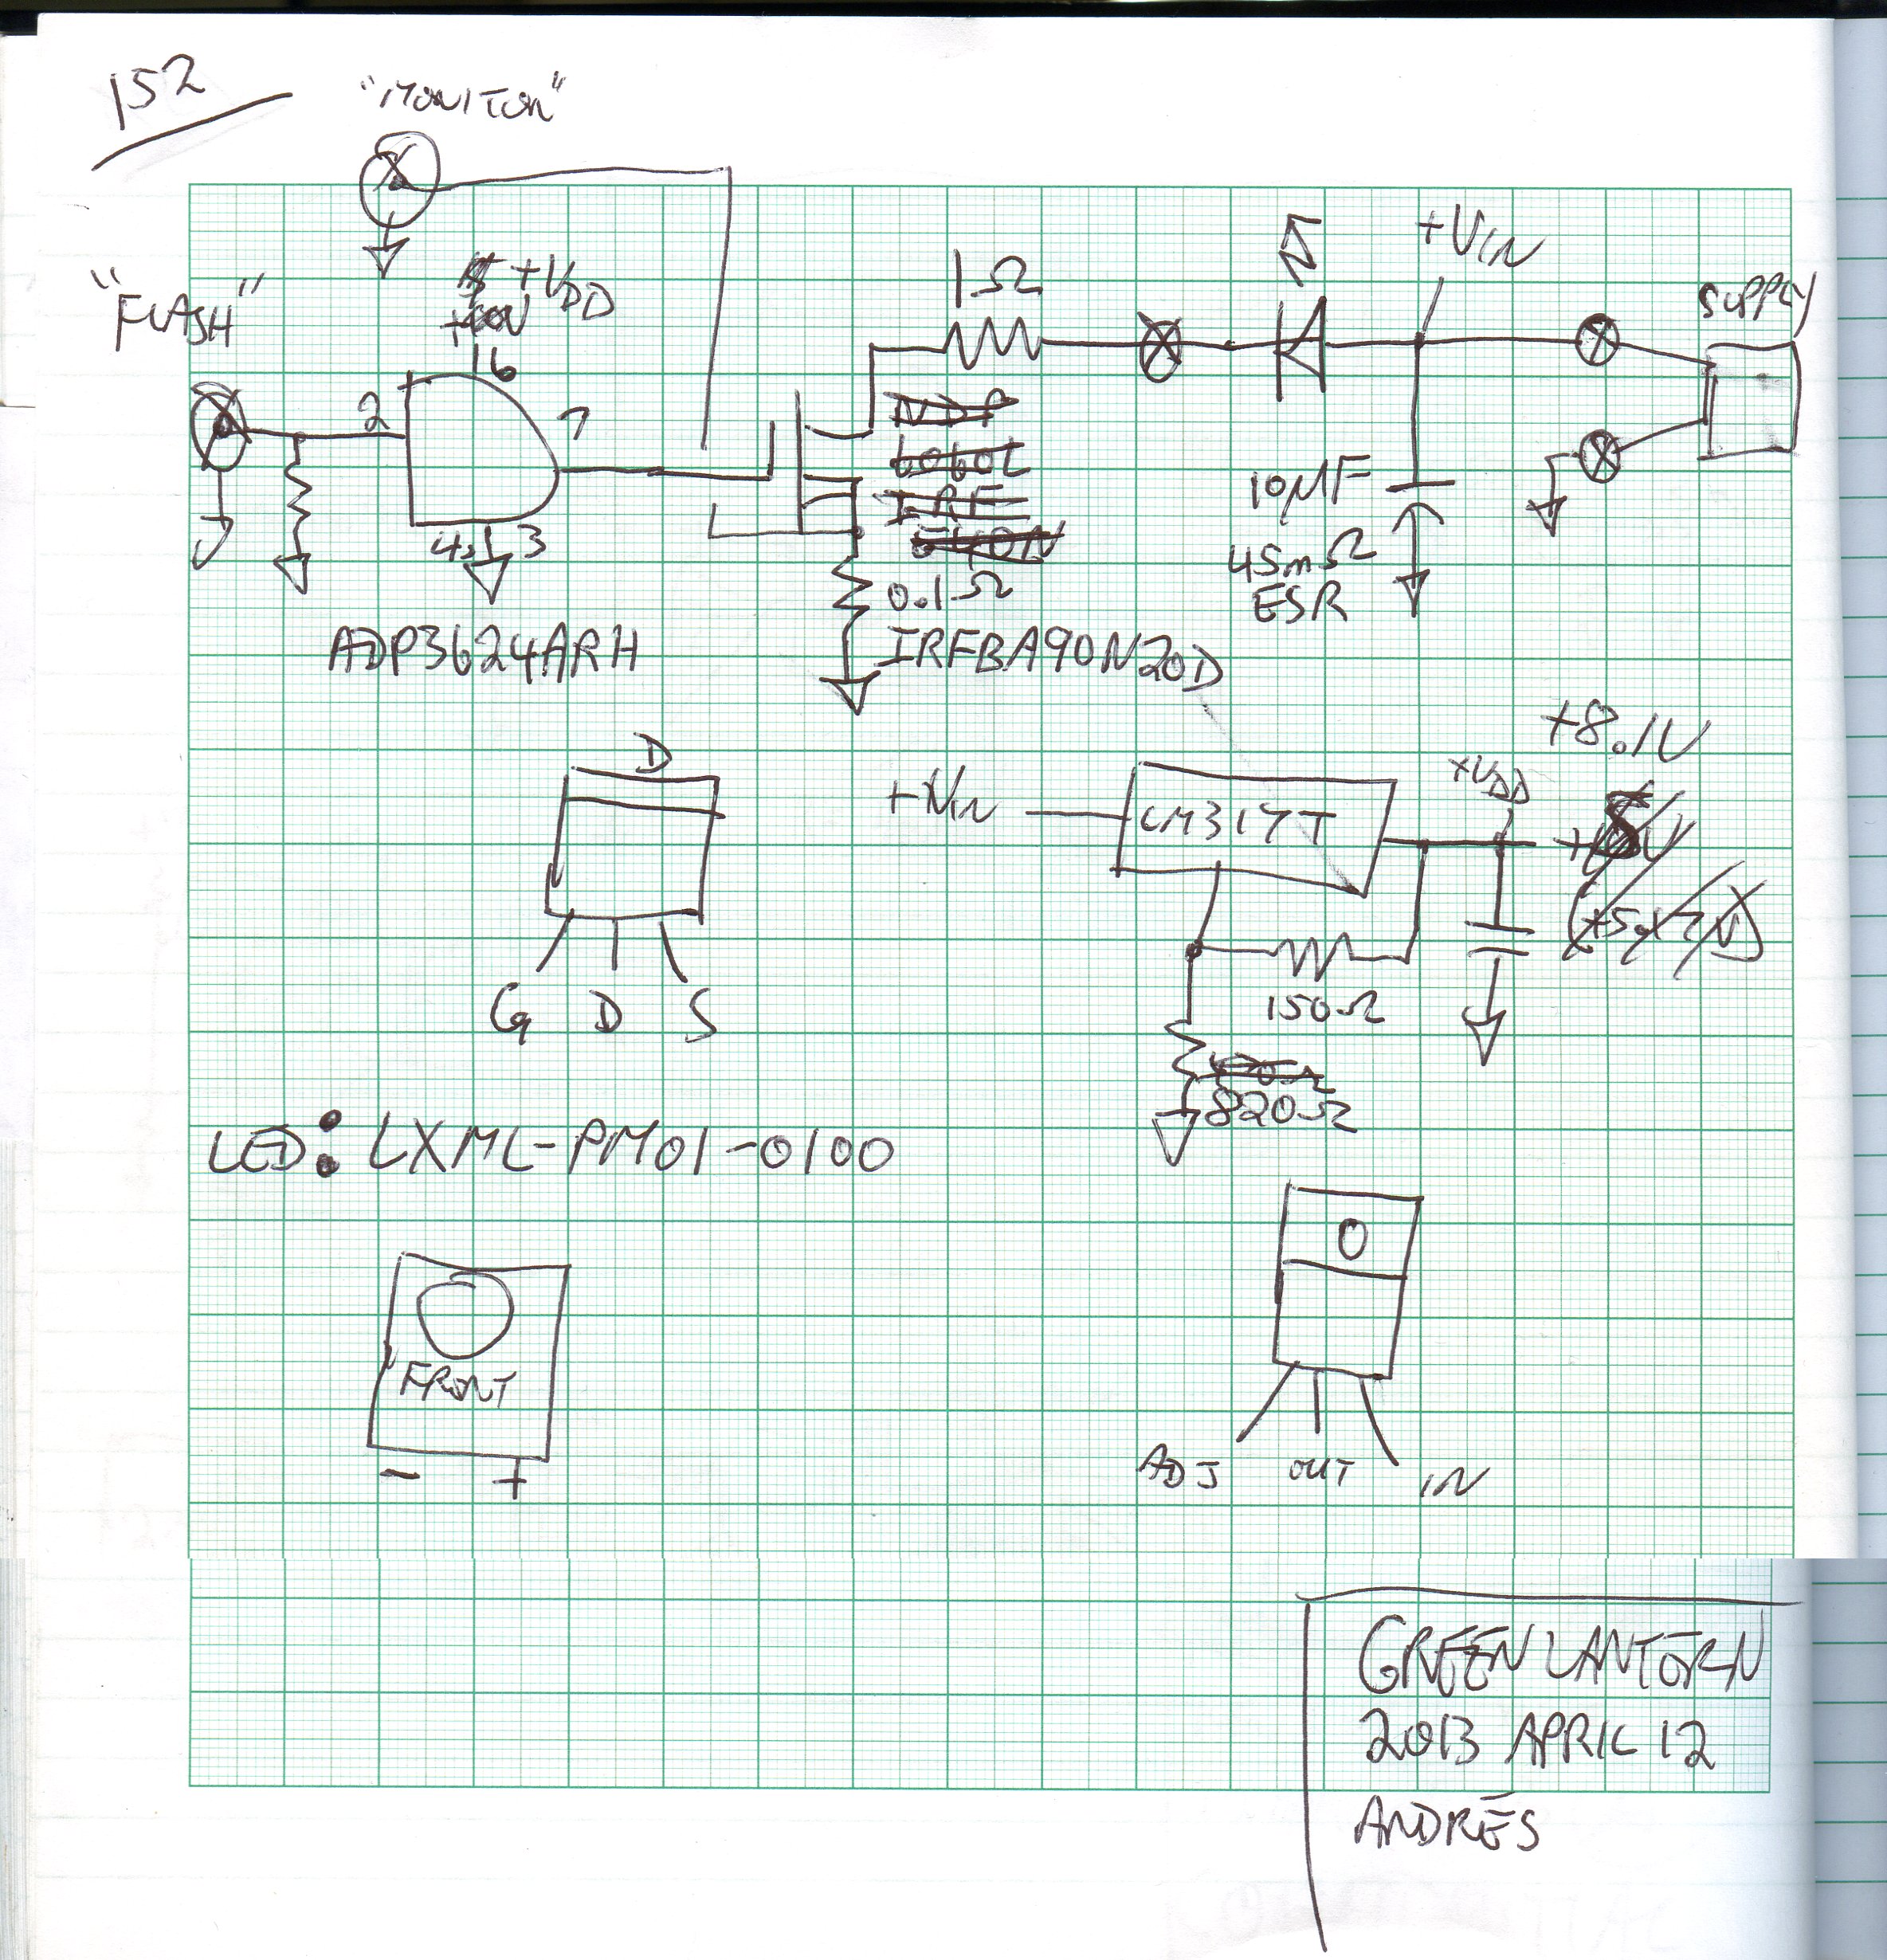 152
"MONITOR"
"FLASH"
+VDD
16
2
7
4, 3
ADP3624ARH
1Ω
NDP
6060L
IRF
540N
0.1Ω
IRFBA90N20D
+VIN
SUPPLY
10µF
45mΩ
ESR
D
G D S
+VIN
LM317T
+VDD
+8.1V
150Ω
820Ω
LED: LXML-PM01-0100
FRONT
- +
ADJ OUT IN
GREEN LANTERN
2013 APRIL 12
ANDRÉS